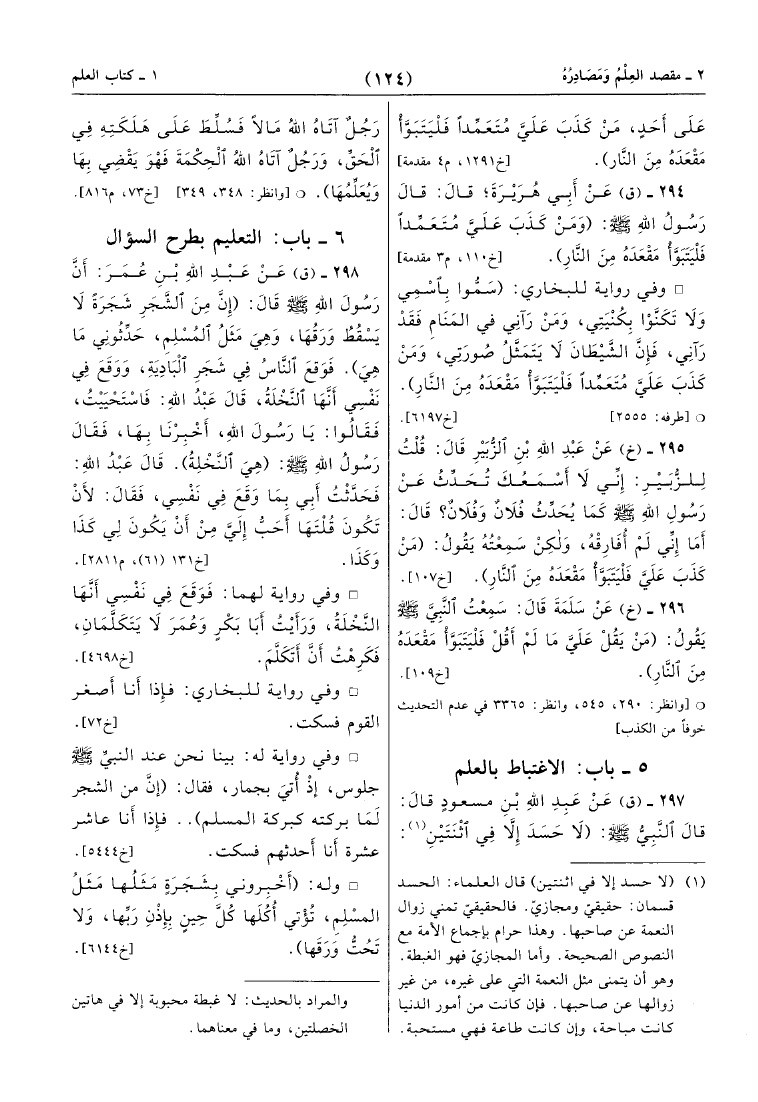 ٢ ـ مقصد العِلْمُ وَمَصَادِرُهُ
(١٢٤)
١ ـ كتاب العلم
عَلَى أَحَدٍ، مَنْ كَذَبَ عَلَيَّ مُتَعَمِّداً فَلْيَتَبَوَّأْ
مَقْعَدَهُ مِنَ النَّارِ). [خ١٢٩١، م٤ مقدمة]
٢٩٤ ـ (ق) عَنْ أَبِي هُرَيْرَةَ؛ قالَ: قالَ
رَسُولُ اللهِ ﷺ: (وَمَنْ كَذَبَ عَلَيَّ مُتَعَمِّداً
فَلْيَتَبَوَّأْ مَقْعَدَهُ مِنَ النَّارِ). [خ١١٠، م٣ مقدمة]
□ وفي رواية للبخاري: (سَمُّوا بِٱسْمِي
وَلَا تَكَنَّوْا بِكُنْيَتِي، وَمَنْ رَآنِي في المَنَامِ فَقَدْ
رَآنِي، فَإِنَّ الشَّيْطَانَ لَا يَتَمَثَّلُ صُورَتِي، وَمَنْ
كَذَبَ عَلَيَّ مُتَعَمِّداً فَلْيَتَبَوَّأْ مَقْعَدَهُ مِنَ النَّارِ).
○ [طرفه: ٢٥٥٥] [خ٦١٩٧].
٢٩٥ ـ (خ) عَنْ عَبْدِ اللهِ بْنِ ٱلزُّبَيْرِ قَالَ: قُلْتُ
لِلزُّبَيْرِ: إِنِّي لَا أَسْمَعُكَ تُحَدِّثُ عَنْ
رَسُولِ اللهِ ﷺ كَمَا يُحَدِّثُ فُلَانٌ وَفُلَانٌ؟ قالَ:
أَمَا إِنِّي لَمْ أُفَارِقْهُ، وَلٰكِنْ سَمِعْتُهُ يَقُولُ: (مَنْ
كَذَبَ عَلَيَّ فَلْيَتَبَوَّأْ مَقْعَدَهُ مِنَ ٱلنَّارِ). [خ١٠٧].
٢٩٦ ـ (خ) عَنْ سَلَمَةَ قَالَ: سَمِعْتُ ٱلنَّبِيَّ ﷺ
يَقُولُ: (مَنْ يَقُلْ عَلَيَّ مَا لَمْ أَقُلْ فَلْيَتَبَوَّأْ مَقْعَدَهُ
مِنَ ٱلنَّارِ). [خ١٠٩].
○ [وانظر: ٢٩٠، ٥٤٥، وانظر: ٣٣٦٥ في عدم التحديث
خوفاً من الكذب]
٥ ـ باب: الاغتباط بالعلم
٢٩٧ ـ (ق) عَنْ عَبدِ اللهِ بْنِ مسعودٍ قالَ:
قالَ النَّبِيُّ ﷺ: (لَا حَسَدَ إِلَّا فِي ٱثْنَتَيْنِ(١):
(١) (لا حسد إلا في اثنتين) قال العلماء: الحسد
قسمان: حقيقيّ ومجازيّ. فالحقيقيّ تمني زوال
النعمة عن صاحبها. وهذا حرام بإجماع الأمة مع
النصوص الصحيحة. وأما المجازيّ فهو الغبطة.
وهو أن يتمنى مثل النعمة التي على غيره، من غير
زوالها عن صاحبها. فإن كانت من أمور الدنيا
كانت مباحة، وإن كانت طاعة فهي مستحبة.
رَجُلٌ آتَاهُ اللهُ مَالاً فَسُلِّطَ عَلَى هَلَكَتِهِ فِي
ٱلْحَقِّ، وَرَجُلٌ آتَاهُ اللهُ ٱلْحِكْمَةَ فَهْوَ يَقْضِي بِهَا
وَيُعَلِّمُهَا). ○ [وانظر: ٣٤٨، ٣٤٩] [خ٧٣، م٨١٦].
٦ ـ باب: التعليم بطرح السؤال
٢٩٨ ـ (ق) عَنْ عَبْدِ اللهِ بْنِ عُمَرَ: أَنَّ
رَسُولَ اللهِ ﷺ قَالَ: (إِنَّ مِنَ الشَّجَرِ شَجَرَةً لَا
يَسْقُطُ وَرَقُهَا، وَهِيَ مَثَلُ ٱلمُسْلِمِ، حَدِّثُونِي مَا
هِيَ). فَوَقَعَ ٱلنَّاسُ فِي شَجَرِ ٱلْبَادِيَةِ، وَوَقَعَ فِي
نَفْسِي أَنَّهَا ٱلنَّخْلَةُ، قَالَ عَبْدُ اللهِ: فَاسْتَحْيَيْتُ،
فَقَالُوا: يَا رَسُولَ اللهِ، أَخْبِرْنَا بِهَا، فَقَالَ
رَسُولُ اللهِ ﷺ: (هِيَ ٱلنَّخْلَةُ). قَالَ عَبْدُ اللهِ:
فَحَدَّثْتُ أَبِي بِمَا وَقَعَ فِي نَفْسِي، فَقَالَ: لأَنْ
تَكُونَ قُلْتَهَا أَحَبُّ إِلَيَّ مِنْ أَنْ يَكُونَ لِي كَذَا
وَكَذَا. [خ١٣١ (٦١)، م٢٨١١].
□ وفي رواية لهما: فَوَقَعَ فِي نَفْسِي أَنَّهَا
النَّخْلَةُ، وَرَأَيْتُ أَبَا بَكْرٍ وَعُمَرَ لَا يَتَكَلَّمَانِ،
فَكَرِهْتُ أَنْ أَتَكَلَّمَ. [خ٤٦٩٨].
□ وفي رواية للبخاري: فإذا أنا أصغر
القوم فسكت. [خ٧٢].
□ وفي رواية له: بينا نحن عند النبيِّ ﷺ
جلوس، إذْ أُتيَ بجمار، فقال: (إنَّ من الشجر
لَمَا بركته كبركة المسلم).. فإذا أنا عاشر
عشرة أنا أحدثهم فسكت. [خ٥٤٤٤].
□ وله: (أَخْبِروني بِشَجَرَةٍ مَثَلُها مَثَلُ
المسْلِمِ، تُؤْتي أُكُلَها كُلَّ حينٍ بِإِذْنِ رَبِّها، وَلا
تَحُتُّ وَرَقَها). [خ٦١٤٤].
والمراد بالحديث: لا غبطة محبوبة إلا في هاتين
الخصلتين، وما في معناهما.